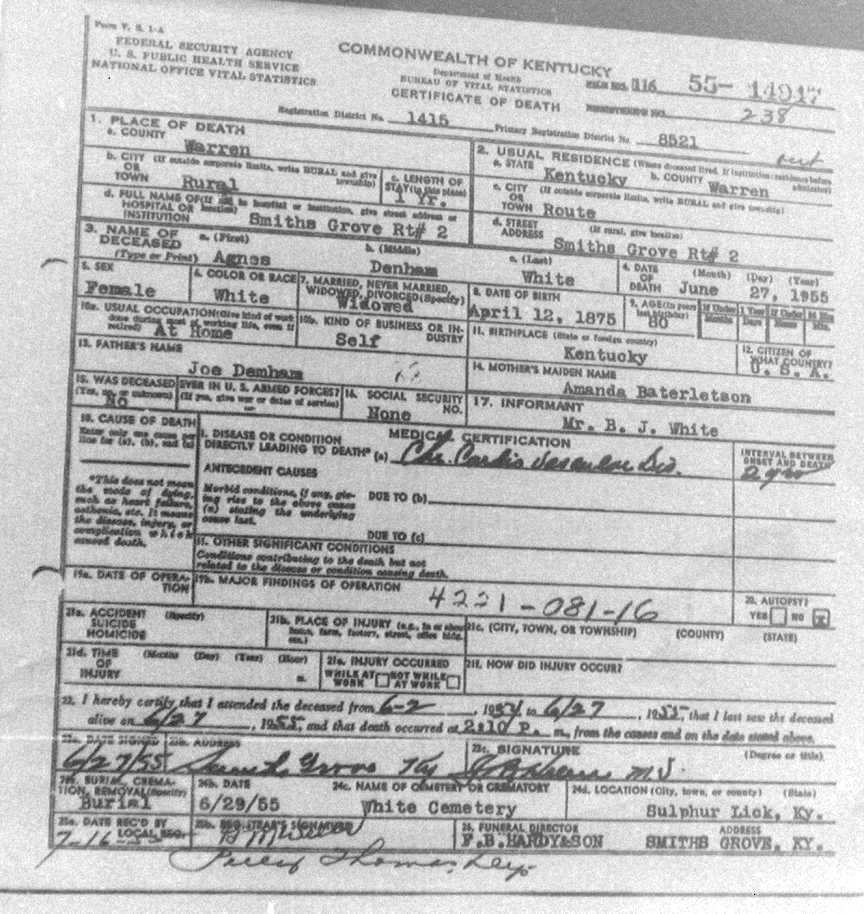 Form V. S. 1-A
FEDERAL SECURITY AGENCY
U. S. PUBLIC HEALTH SERVICE
NATIONAL OFFICE VITAL STATISTICS
COMMONWEALTH OF KENTUCKY
Department of Health
BUREAU OF VITAL STATISTICS
CERTIFICATE OF DEATH
FILE NO. 116 55- 14917
REGISTRAR'S NO. 238
Registration District No. 1415 Primary Registration District No. 8521
1. PLACE OF DEATH
a. COUNTY
Warren
b. CITY (If outside corporate limits, write RURAL and give township)
OR
TOWN Rural
c. LENGTH OF STAY (in this place)
1 Yr.
d. FULL NAME OF (If not in hospital or institution, give street address or location)
HOSPITAL OR
INSTITUTION Smiths Grove Rt# 2
2. USUAL RESIDENCE (Where deceased lived. If institution: residence before admission)
a. STATE Kentucky b. COUNTY Warren
c. CITY (If outside corporate limits, write RURAL and give township)
OR
TOWN Route
d. STREET (If rural, give location)
ADDRESS Smiths Grove Rt# 2
3. NAME OF DECEASED
(Type or Print)
a. (First) Agnes
b. (Middle) Denham
c. (Last) White
4. DATE OF DEATH (Month) (Day) (Year)
June 27, 1955
5. SEX
Female
6. COLOR OR RACE
White
7. MARRIED, NEVER MARRIED, WIDOWED, DIVORCED (Specify)
Widowed
8. DATE OF BIRTH
April 12, 1875
9. AGE (In years last birthday)
80
If Under 1 Year
Months Days
If Under 24 Hrs
Hours Min.
10a. USUAL OCCUPATION (Give kind of work done during most of working life, even if retired)
At Home
10b. KIND OF BUSINESS OR INDUSTRY
Self
11. BIRTHPLACE (State or foreign country)
Kentucky
12. CITIZEN OF WHAT COUNTRY?
U. S. A.
13. FATHER'S NAME
Joe Demham
14. MOTHER'S MAIDEN NAME
Amanda Baterletson
15. WAS DECEASED EVER IN U. S. ARMED FORCES?
(Yes, no, or unknown) (If yes, give war or dates of service)
No
16. SOCIAL SECURITY NO.
None
17. INFORMANT
Mr. B. J. White
18. CAUSE OF DEATH
Enter only one cause per line for (a), (b), and (c)
*This does not mean the mode of dying, such as heart failure, asthenia, etc. It means the disease, injury, or complication which caused death.
MEDICAL CERTIFICATION
I. DISEASE OR CONDITION
DIRECTLY LEADING TO DEATH* (a) Chr. Cardio Vascular Dis.
INTERVAL BETWEEN ONSET AND DEATH
2 yrs
ANTECEDENT CAUSES
Morbid conditions, if any, giving rise to the above cause (a) stating the underlying cause last.
DUE TO (b)
DUE TO (c)
II. OTHER SIGNIFICANT CONDITIONS
Conditions contributing to the death but not related to the disease or condition causing death.
19a. DATE OF OPERATION
19b. MAJOR FINDINGS OF OPERATION
4221-081-16
20. AUTOPSY?
YES NO X
21a. ACCIDENT (Specify)
SUICIDE
HOMICIDE
21b. PLACE OF INJURY (e.g., in or about home, farm, factory, street, office bldg., etc.)
21c. (CITY, TOWN, OR TOWNSHIP) (COUNTY) (STATE)
21d. TIME OF INJURY (Month) (Day) (Year) (Hour) m.
21e. INJURY OCCURRED
WHILE AT WORK NOT WHILE AT WORK
21f. HOW DID INJURY OCCUR?
22. I hereby certify that I attended the deceased from 6-2, 1954 to 6/27, 1955, that I last saw the deceased
alive on 6/27, 1955, and that death occurred at 2:10 P. m., from the causes and on the date stated above.
23a. DATE SIGNED
6/27/55
23b. ADDRESS
Grove Ky
23c. SIGNATURE (Degree or title)
M.D.
24a. BURIAL, CREMATION, REMOVAL (Specify)
Burial
24b. DATE
6/29/55
24c. NAME OF CEMETERY OR CREMATORY
White Cemetery
24d. LOCATION (City, town, or county) (State)
Sulphur Lick, Ky.
25a. DATE REC'D BY LOCAL REG.
7-16-55
25b. REGISTRAR'S SIGNATURE
Thomas, Dep.
26. FUNERAL DIRECTOR ADDRESS
F.B.HARDY&SON SMITHS GROVE, KY.